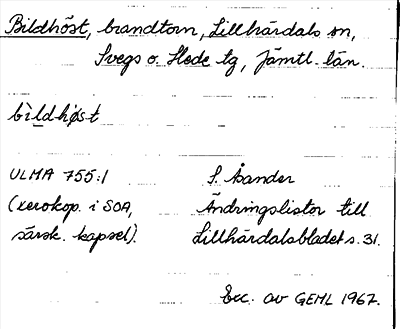 Bildhöst, brandtorn, Lillhärdals sn,
Svegs o. Hede tg, Jämtl. län.
bìldhǿst
ULMA 755:1 S. Åander
(xerokop. i SOA, Ändringslistor till
särsk. kapsel). Lillhärdalsbladet s. 31.
Exc. av GEHL 1967.